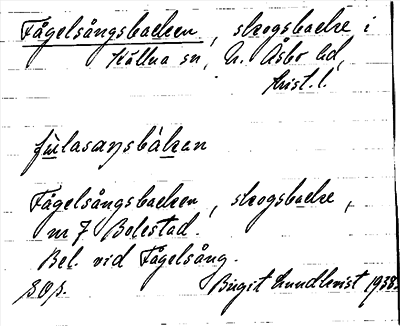 Fågelsångsbacken, skogsbacke i
Källna sn, N. Åsbo hd,
Krist. l.
fúlasaŋsbákan
Fågelsångsbacken, skogsbacke,
nr 7 Bolestad.
Bel. vid Fågelsång.
Birgit Lundkvist 1938.